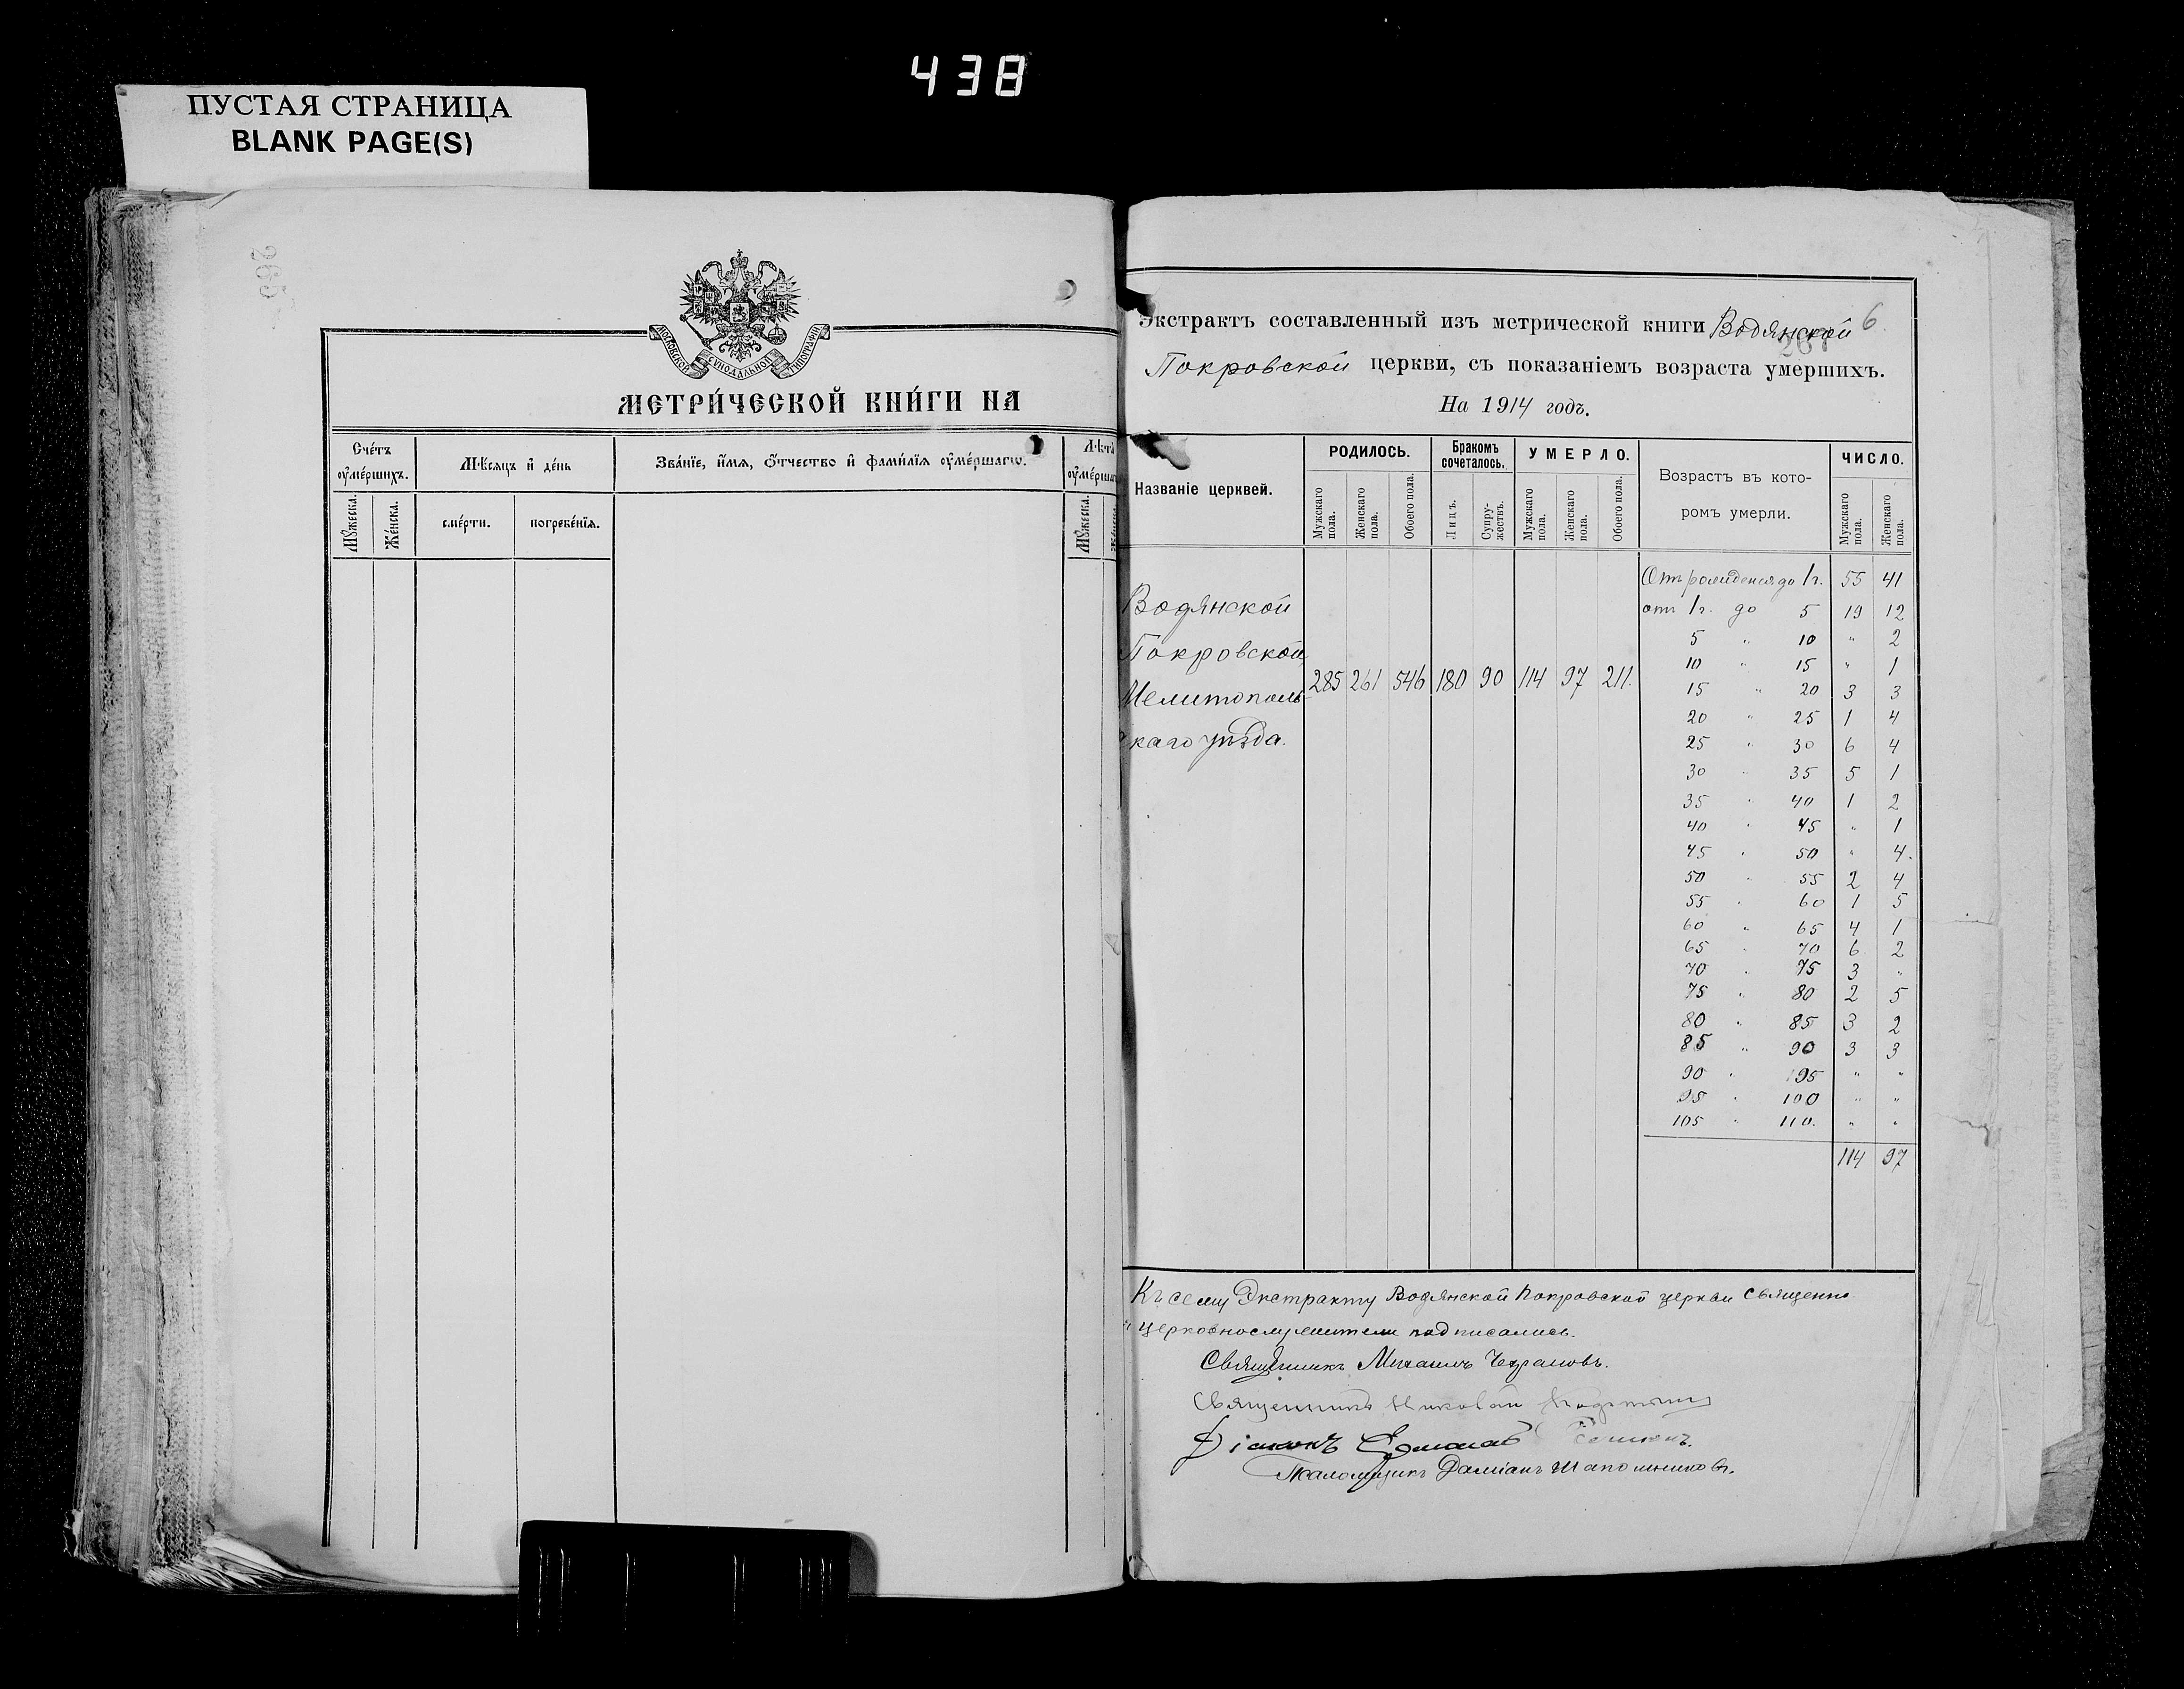 438
ПУСТАЯ СТРАНИЦА
BLANK PAGE(S)
265
МОСКОВСКОЙ СѴНОДАЛЬНОЙ ТИПОГРАФІИ
МЕТРИ́ЧЕСКОЙ КНИ́ГИ НА
Сче́тъ ᲂу҆ме́ршихъ.
Мѣ́сяцъ и҆ де́нь
Зва́нїе, и҆́мѧ, ѻ҆́тчество и҆ фами́лїѧ ᲂу҆ме́ршагѡ.
Мꙋ́жеска.
Же́нска.
сме́рти.
погребе́нїѧ.
Мꙋ́жеска.
Экстрактъ составленный изъ метрической книги Водянской 6
Покровской церкви, съ показаніемъ возраста умершихъ.
На 1914 годъ.
Названіе церквей.
РОДИЛОСЬ.
Бракомъ сочеталось.
УМЕРЛО.
Возрастъ въ которомъ умерли.
ЧИСЛО.
Мужскаго пола.
Женскаго пола.
Обоего пола.
Лицъ.
Супружествъ.
Мужскаго пола.
Женскаго пола.
Обоего пола.
Мужскаго пола.
Женскаго пола.
Водянской
Покровской
Мелитополь-
каго уѣзда.
285 261 546 180 90 114 97 211.
Отъ рожденія до 1 г. 55 41
отъ 1 г. до 5 19 12
5 " 10 " 2
10 " 15 " 1
15 " 20 3 3
20 " 25 1 4
25 " 30 6 4
30 " 35 5 1
35 " 40 1 2
40 " 45 " 1
45 " 50 " 4.
50 " 55 2 4
55 " 60 1 5
60 " 65 4 1
65 " 70 6 2
70 " 75 3 "
75 " 80 2 5
80 " 85 3 2
85 " 90 3 3
90 " 95 " "
95 " 100 " "
105 " 110. " "
114 97
Къ сему Экстракту Водянской Покровской церкви священно
церковнослужители подписались.
Священникъ Михаилъ
Священникъ Николай
Діаконъ
Псаломщикъ Даміанъ Шапошниковъ.